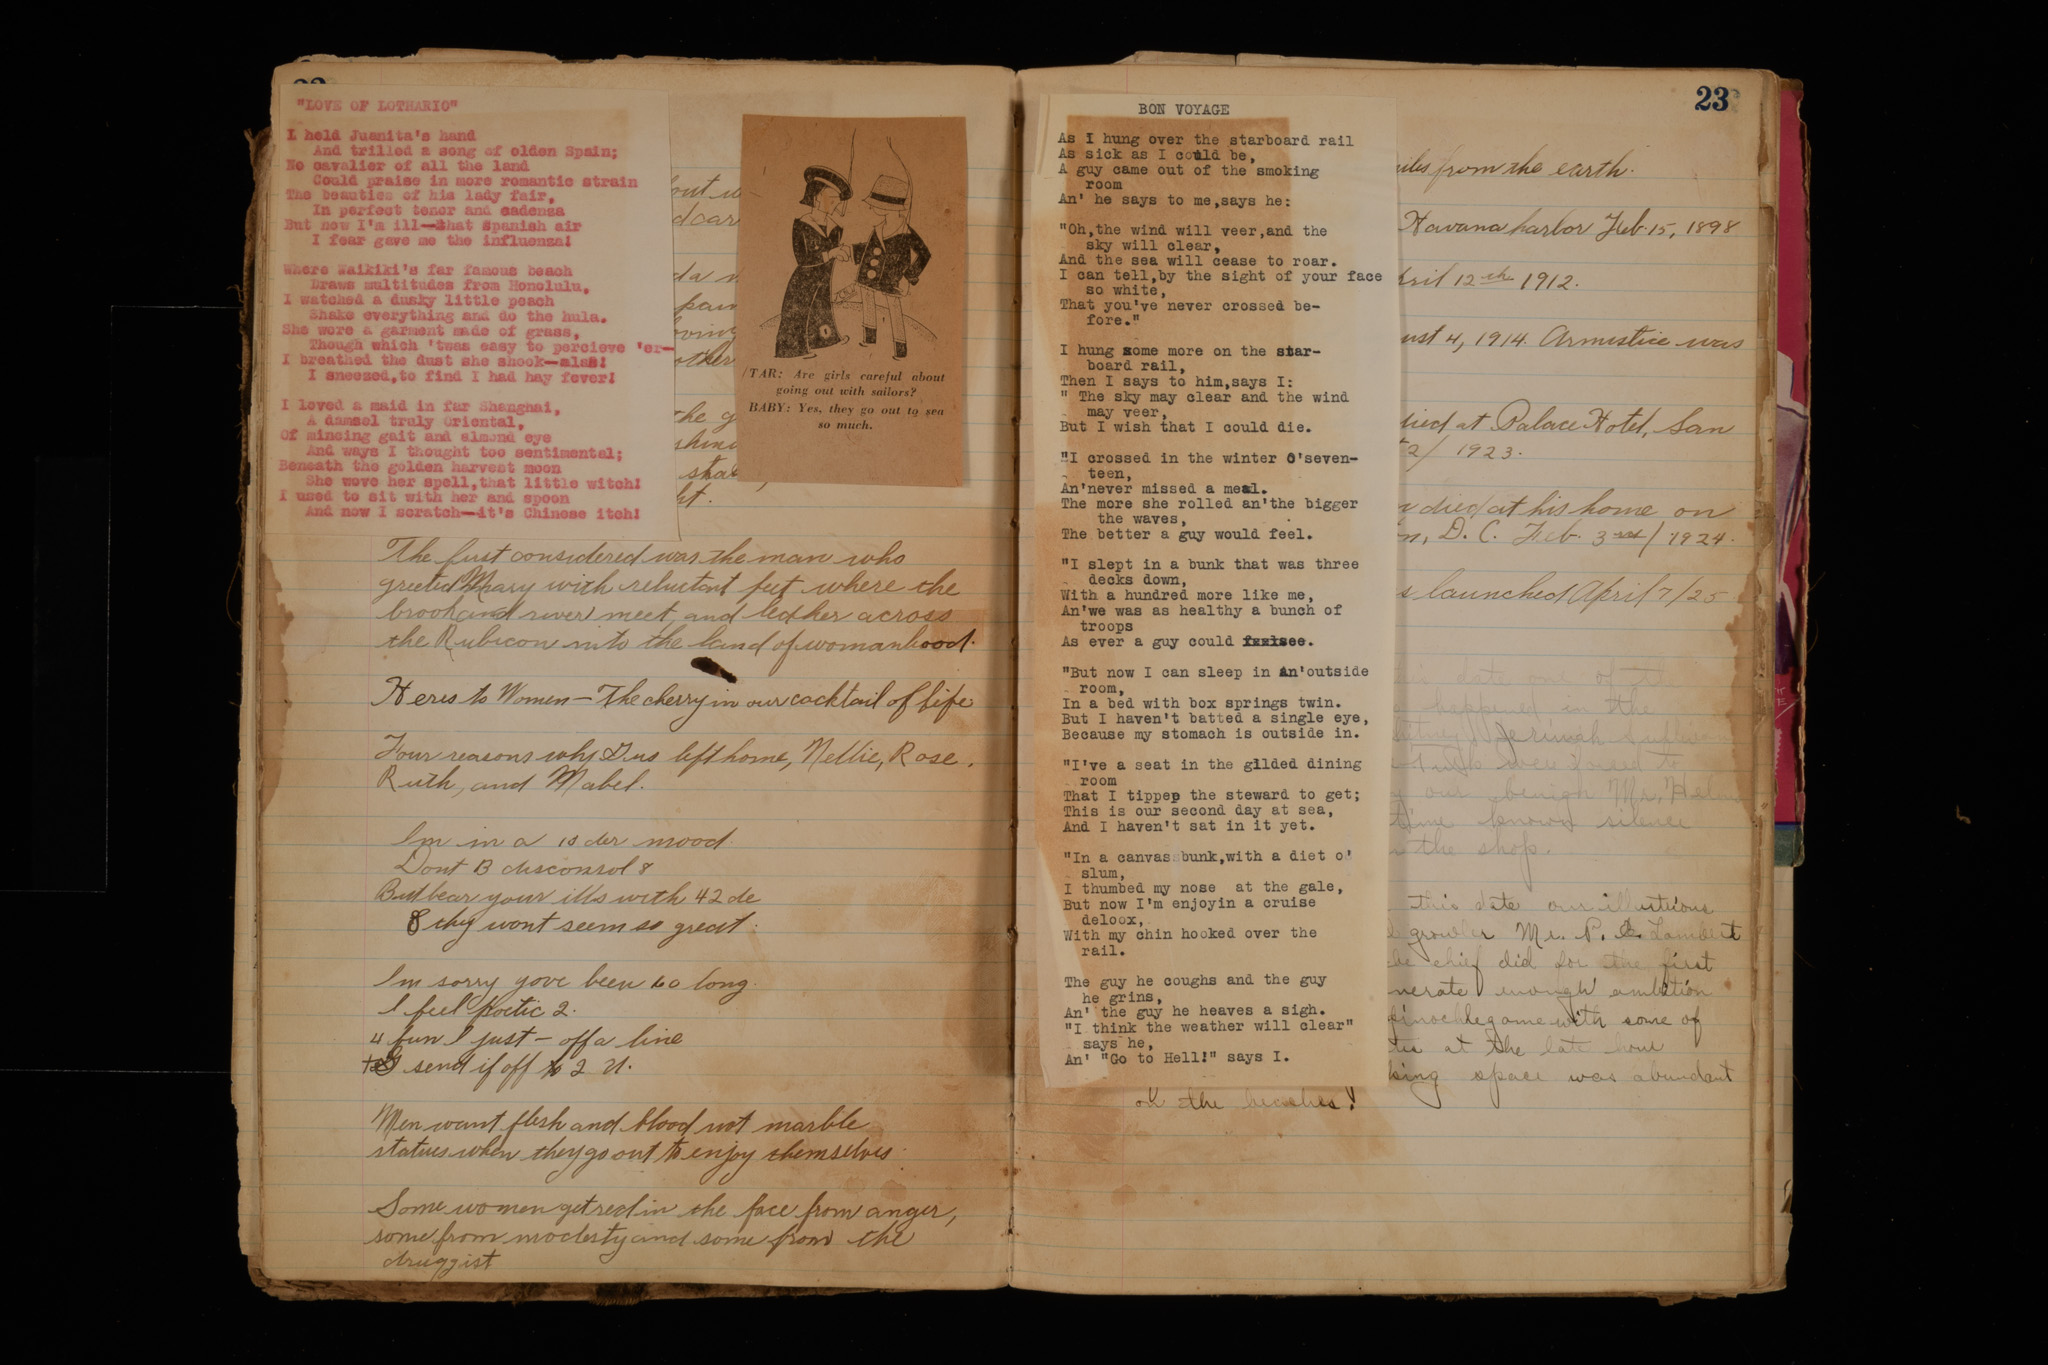 "LOVE OF LOTHARIO"
I held Juanita's hand
And trilled a song of olden Spain;
No cavalier of all the land
Could praise in more romantic strain
The beauties of his lady fair,
In perfect tenor and cadenza
But now I'm ill—that Spanish air
I fear gave me the influenza!
Where Waikiki's far famous beach
Draws multitudes from Honolulu,
I watched a dusky little peach
Shake everything and do the hula.
She wore a garment made of grass,
Though which 'twas easy to percieve 'er—
I breathed the dust she shook—alas!
I sneezed,to find I had hay fever!
I loved a maid in far Shanghai,
A damsel truly Oriental,
Of mincing gait and almond eye
And ways I thought too sentimental;
Beneath the golden harvest moon
She wove her spell,that little witch!
I used to sit with her and spoon
And now I scratch—it's Chinese itch!
TAR: Are girls careful about
going out with sailors?
BABY: Yes, they go out to sea
so much.
The first considered was the man who
greeted Mary with reluctant feet where the
brook and river meet, and led her across
the Rubicon into the land of womanhood.
Heres to Women — The cherry in our cocktail of life
Four reasons why Gus left home, Nellie, Rose,
Ruth, and Mabel.
Im in a 10 der mood.
Dont B disconsol 8
But bear your ills with 42 de
& they wont seem so great.
Im sorry youve been so long.
I feel poetic 2.
4 fun I just — off a line
send if off to 2 U.
Men want flesh and blood not marble
statues when they go out to enjoy themselves
Some women get red in the face from anger,
some from modesty and some from the
druggist
23
BON VOYAGE
As I hung over the starboard rail
As sick as I could be,
A guy came out of the smoking
room
An' he says to me,says he:
"Oh,the wind will veer,and the
sky will clear,
And the sea will cease to roar.
I can tell,by the sight of your face
so white,
That you've never crossed be-
fore."
I hung some more on the star-
board rail,
Then I says to him,says I:
" The sky may clear and the wind
may veer,
But I wish that I could die.
"I crossed in the winter O'seven-
teen,
An'never missed a meal.
The more she rolled an'the bigger
the waves,
The better a guy would feel.
"I slept in a bunk that was three
decks down,
With a hundred more like me,
An'we was as healthy a bunch of
troops
As ever a guy could see.
"But now I can sleep in an'outside
room,
In a bed with box springs twin.
But I haven't batted a single eye,
Because my stomach is outside in.
"I've a seat in the gilded dining
room
That I tipped the steward to get;
This is our second day at sea,
And I haven't sat in it yet.
"In a canvas bunk,with a diet o'
slum,
I thumbed my nose at the gale,
But now I'm enjoyin a cruise
deloox,
With my chin hooked over the
rail.
The guy he coughs and the guy
he grins,
An' the guy he heaves a sigh.
"I think the weather will clear"
says he,
An' "Go to Hell!" says I.
from the earth.
Havana harbor Feb. 15, 1898
12th 1912.
4, 1914. Armistice was
died at Palace Hotel, San
2/ 1923.
died at his home on
D. C. Feb. 3rd/1924.
launched April 7/25
date one of the
happened in the
our benign Mr.
time known silence
the shop.
this date our illustrious
growler Mr. P. Lambert
chief did for the first
enough ambition
pinochle game with some of
at the late hour
space was abundant
on the benches!